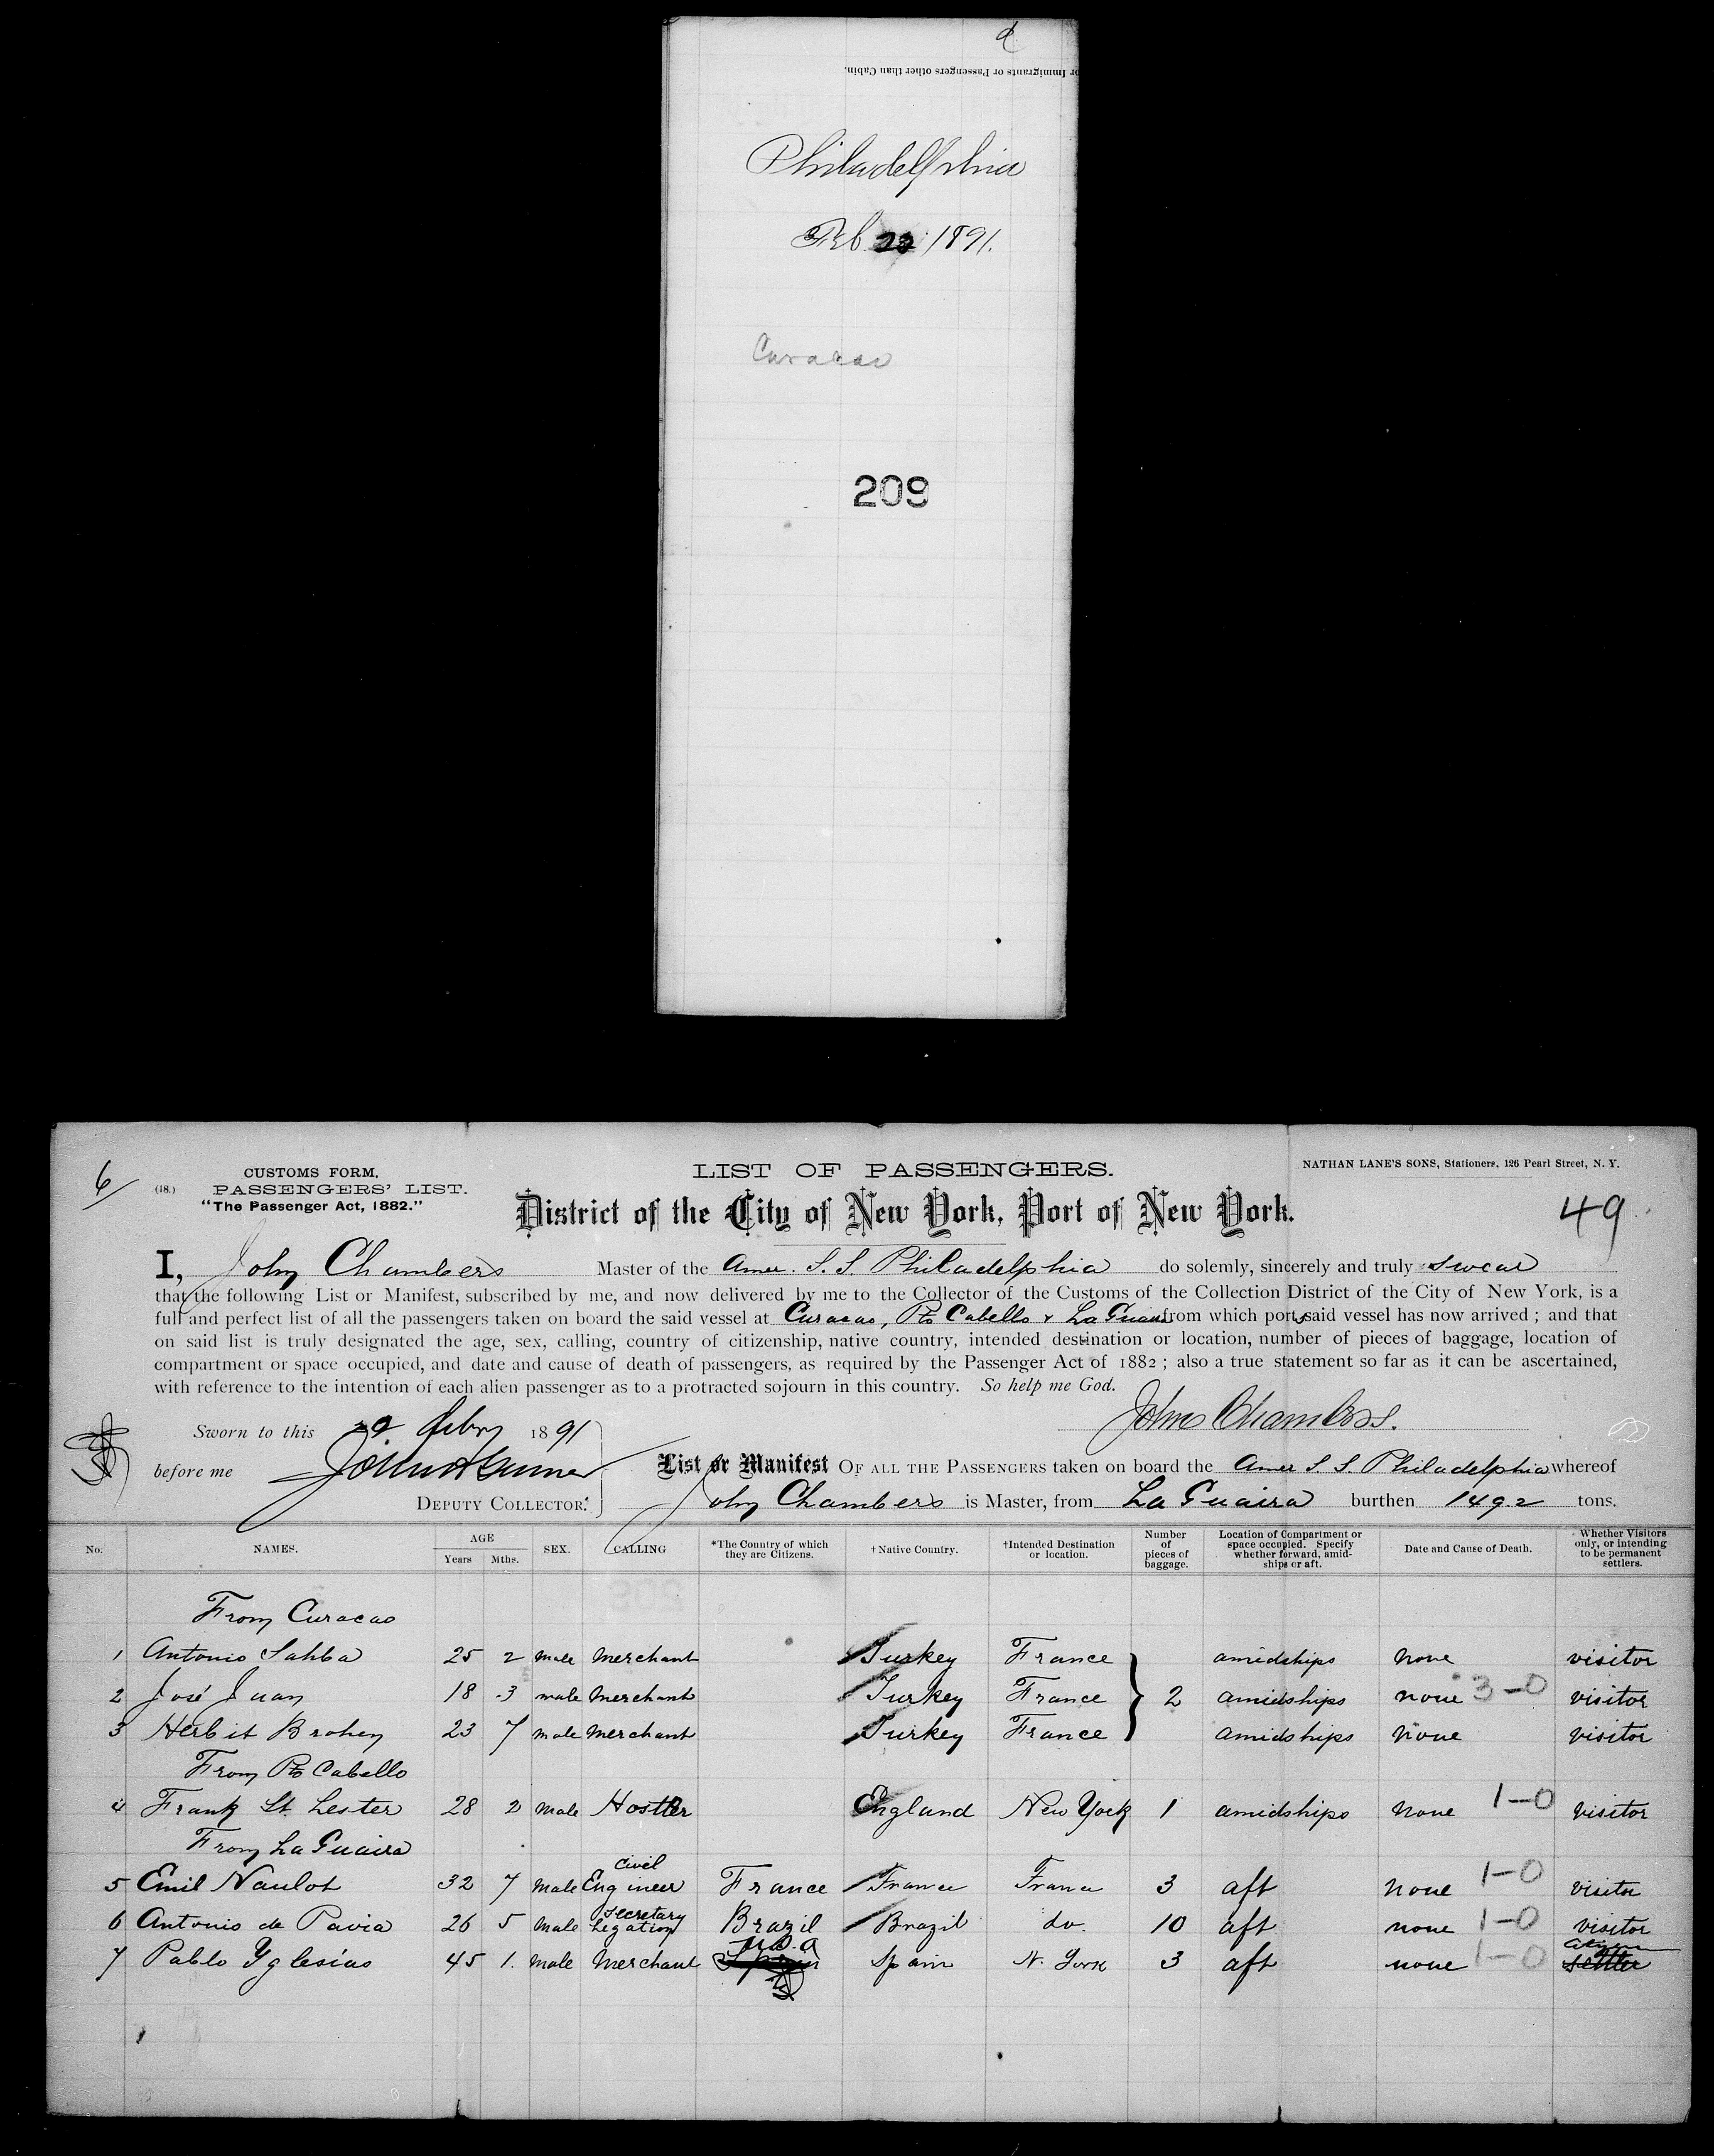 or Immigrants or Passengers other than Cabin.
Philadelphia
Feb 22 1891.
Curacao
209
6
(18.)
CUSTOMS FORM,
PASSENGERS' LIST.
"The Passenger Act, 1882."
LIST OF PASSENGERS.
NATHAN LANE'S SONS, Stationers, 126 Pearl Street, N. Y.
District of the City of New York, Port of New York.
49
I, John Chambers Master of the Amer. S. S. Philadelphia do solemly, sincerely and truly swear
that the following List or Manifest, subscribed by me, and now delivered by me to the Collector of the Customs of the Collection District of the City of New York, is a
full and perfect list of all the passengers taken on board the said vessel at Curacao, Pto Cabello & La Guaira from which ports said vessel has now arrived ; and that
on said list is truly designated the age, sex, calling, country of citizenship, native country, intended destination or location, number of pieces of baggage, location of
compartment or space occupied, and date and cause of death of passengers, as required by the Passenger Act of 1882 ; also a true statement so far as it can be ascertained,
with reference to the intention of each alien passenger as to a protracted sojourn in this country. So help me God.
John Chambers.
Sworn to this 22 febry 1891
before me
DEPUTY COLLECTOR.
List or Manifest OF ALL THE PASSENGERS taken on board the Amer S. S. Philadelphia whereof
John Chambers is Master, from La Guaira burthen 1492 tons.
No. NAMES. AGE Years Mths. SEX. CALLING *The Country of which they are Citizens. †Native Country. †Intended Destination or location. Number of pieces of baggage. Location of Compartment or space occupied. Specify whether forward, amidships or aft. Date and Cause of Death. Whether Visitors only, or intending to be permanent settlers.
From Curacao
1 Antonio Sahba 25 2 male Merchant Turkey France amidships none visitor
2 José Juan 18 .3 male Merchant Turkey France 2 amidships none 3-0 visitor
3 Herbit Brohen 23 7 male Merchant Turkey France amidships none visitor
From Pto Cabello
4 Frank St. Lester 28 2 male Hostler England New York 1 amidships none 1-0 visitor
From La Guaira
5 Emil Naulot 32 7 male Civil Engineer France France France 3 aft none 1-0 visitor
6 Antonio de Pavia 26 5 male Secretary Legation Brazil Brazil do. 10 aft none 1-0 visitor
7 Pablo Yglesias 45 1. male Merchant Spain U.S.a Spain N. York 3 aft none 1-0 settler